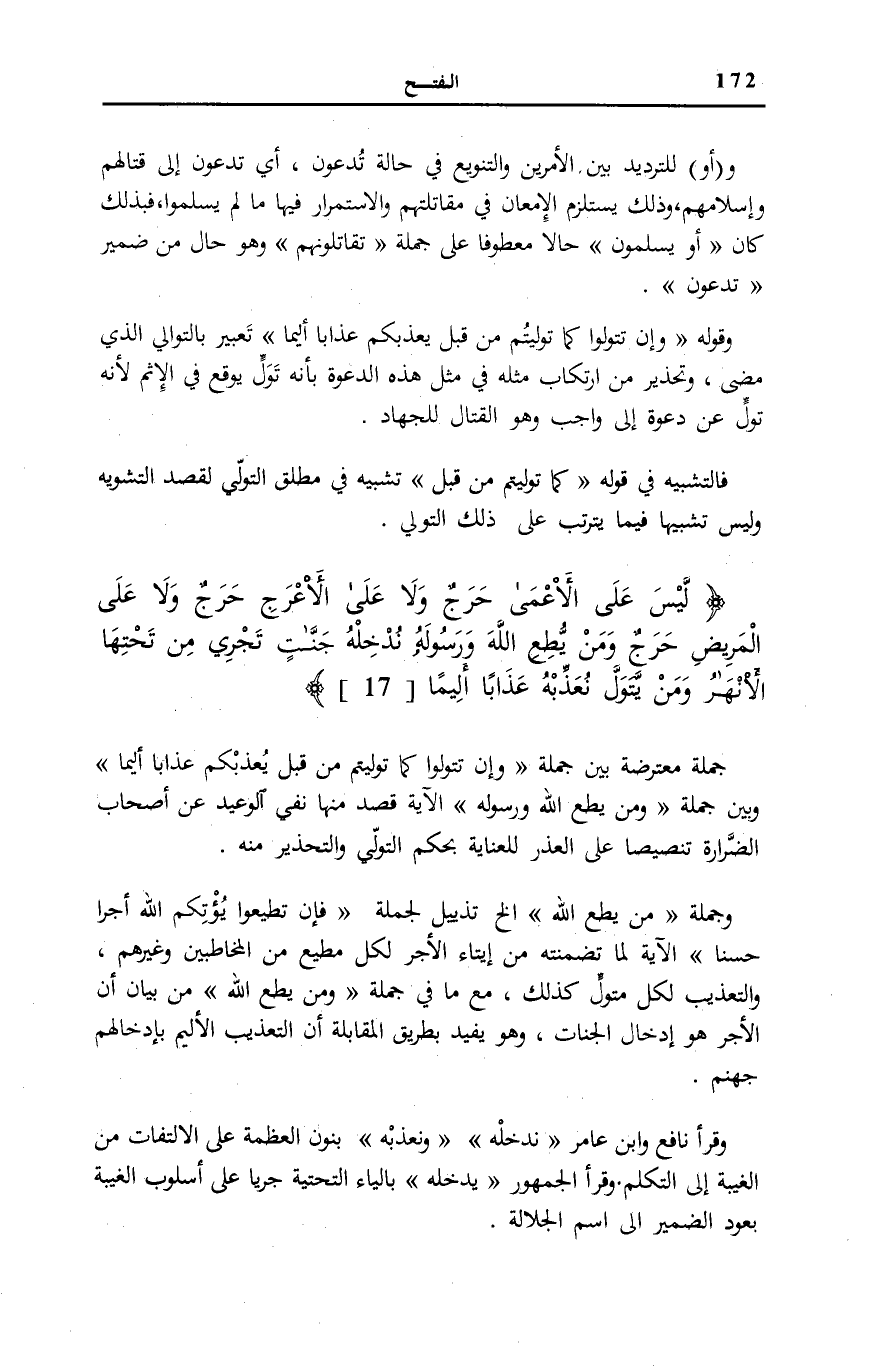 172 الفتـــح
و(أو) للترديد بين الأمرين والتنويع في حالة تُدعون ، أي تدعون إلى قتالهم
وإسلامهم،وذلك يستلزم الإِمعان في مقاتلتهم والاستمرار فيها ما لم يسلموا،فبذلك
كان « أو يسلمون » حالا معطوفا على جملة « تقاتلونهم » وهو حال من ضمير
« تدعون » .
وقوله « وإن تتولوا كما توليتُم من قبل يعذبكم عذابا أليما » تَعبير بالتوالي الذي
مضى ، وتحذير من ارتكاب مثله في مثل هذه الدعوة بأنه تَوَلٍّ يوقع في الإِثم لأنه
تولٍّ عن دعوة إلى واجب وهو القتال للجهاد .
فالتشبيه في قوله « كما توليتم من قبل » تشبيه في مطلق التولّي لقصد التشويه
وليس تشبيها فيما يترتب على ذلك التولي .
﴿ لَّيْسَ عَلَى الْأَعْمَىٰ حَرَجٌ وَلَا عَلَىٰ الْأَعْرَجِ حَرَجٌ وَلَا عَلَى
الْمَرِيضِ حَرَجٌ وَمَنْ يُّطِعِ اللَّهَ وَرَسُولَهُۥ نُدْخِلْهُ جَنَّـٰتٍ تَجْرِي مِن تَحْتِهَا
الْأَنْهَـٰرُ وَمَنْ يَّتَوَلَّ نُعَذِّبْهُ عَذَابًا أَلِيمًا [ 17 ] ﴾
جملة معترضة بين جملة « وإن تتولوا كما توليتم من قبل يُعذبْكم عذابا أليما »
وبين جملة « ومن يطع الله ورسوله » الآية قصد منها نفي الوعيد عن أصحاب
الضَّرارة تنصيصا على العذر للعناية بحكم التولّي والتحذير منه .
وجملة « من يطع الله » الخ تذييل لجملة « فإن تطيعوا يُؤْتِكم الله أجرا
حسنا » الآية لما تضمنته من إيتاء الأجر لكل مطيع من المخاطبين وغيرهم ،
والتعذيب لكل متولٍّ كذلك ، مع ما في جملة « ومن يطع الله » من بيان أن
الأجر هو إدخال الجنات ، وهو يفيد بطريق المقابلة أن التعذيب الأليم بإدخالهم
جهنم .
وقرأ نافع وابن عامر « ندخلْه » « ونعذبْه » بنون العظمة على الالتفات من
الغيبة إلى التكلم.وقرأ الجمهور « يدخله » بالياء التحتية جريا على أسلوب الغيبة
بعود الضمير الى اسم الجلالة .